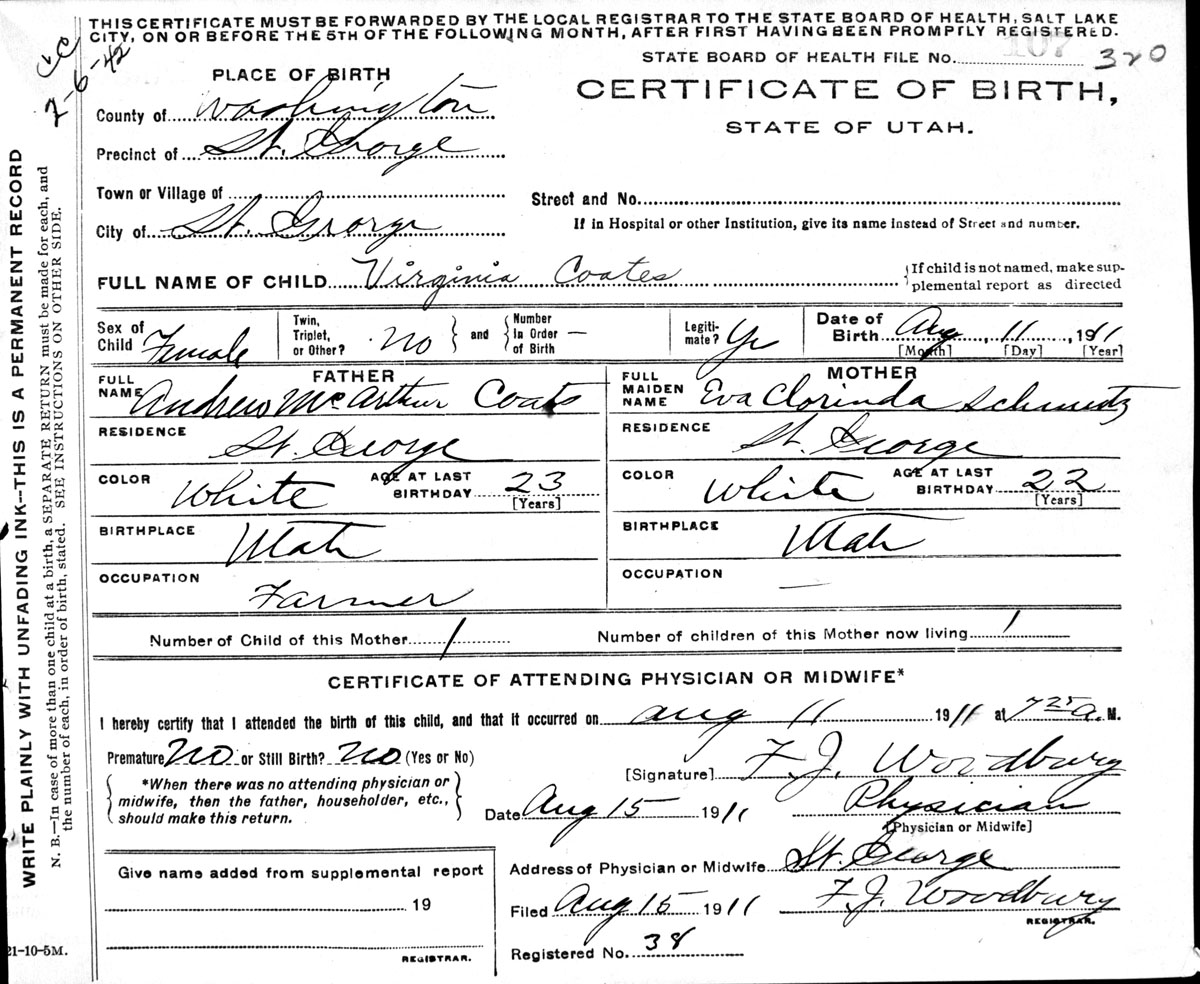 THIS CERTIFICATE MUST BE FORWARDED BY THE LOCAL REGISTRAR TO THE STATE BOARD OF HEALTH, SALT LAKE
CITY, ON OR BEFORE THE 5TH OF THE FOLLOWING MONTH, AFTER FIRST HAVING BEEN PROMPTLY REGISTERED.
7-6-42
107
STATE BOARD OF HEALTH FILE No. 320
CERTIFICATE OF BIRTH,
STATE OF UTAH.
PLACE OF BIRTH
County of Washington
Precinct of St. George
Town or Village of
City of St. George
Street and No.
If in Hospital or other Institution, give its name instead of Street and number.
FULL NAME OF CHILD Virginia Coates
{If child is not named, make sup-
plemental report as directed
Sex of Child Female
Twin, Triplet, or Other? No } and { Number In Order of Birth —
Legiti-mate? Ye
Date of Birth Aug, 11, 1911
[Month] [Day] [Year]
FATHER
FULL NAME Andrew McArthur Coats
RESIDENCE St. George
COLOR White AGE AT LAST BIRTHDAY 23
[Years]
BIRTHPLACE Utah
OCCUPATION Farmer
MOTHER
FULL MAIDEN NAME Eva Clorinda Schmutz
RESIDENCE St. George
COLOR White AGE AT LAST BIRTHDAY 22
[Years]
BIRTHPLACE Utah
OCCUPATION —
Number of Child of this Mother 1 Number of children of this Mother now living 1
CERTIFICATE OF ATTENDING PHYSICIAN OR MIDWIFE*
I hereby certify that I attended the birth of this child, and that it occurred on Aug 11 1911 at 7 25 a. M.
Premature No or Still Birth? No (Yes or No)
{ *When there was no attending physician or
midwife, then the father, householder, etc.,
should make this return. }
[Signature] F. J. Woodbury
Date Aug 15 1911 Physician
[Physician or Midwife]
Address of Physician or Midwife St. George
Filed Aug 15 1911 F. J. Woodbury
REGISTRAR.
Registered No. 38
Give name added from supplemental report
19
REGISTRAR.
21-10-5M.
WRITE PLAINLY WITH UNFADING INK--THIS IS A PERMANENT RECORD
N. B.—In case of more than one child at a birth, a SEPARATE RETURN must be made for each, and
the number of each, in order of birth, stated. SEE INSTRUCTIONS ON OTHER SIDE.